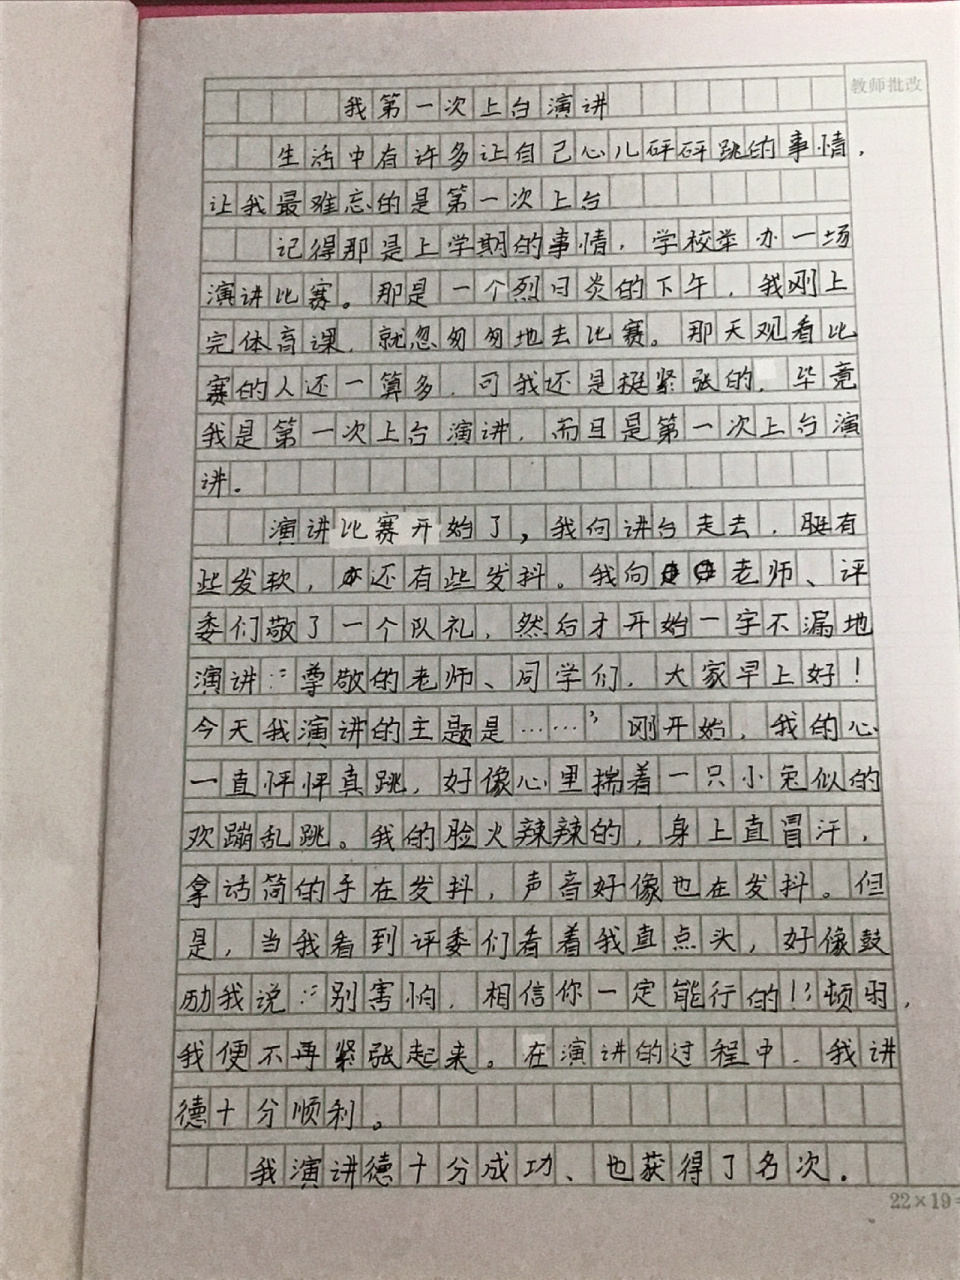 教师批改
我第一次上台演讲
生活中有许多让自己心儿砰砰跳的事情，
让我最难忘的是第一次上台
记得那是上学期的事情，学校举办一场
演讲比赛。那是一个烈日炎的下午，我刚上
完体育课，就忽匆匆地去比赛。那天观看比
赛的人还一算多，可我还是挺紧张的，毕竟
我是第一次上台演讲，而且是第一次上台演
讲．
演讲比赛开始了，我向讲台走去，腿有
些发软，还有些发抖。我向老师、评
委们敬了一个队礼，然后才开始一字不漏地
演讲：“尊敬的老师、同学们，大家早上好！
今天我演讲的主题是……”刚开始，我的心
一直怦怦真跳，好像心里揣着一只小兔似的
欢蹦乱跳。我的脸火辣辣的，身上直冒汗，
拿话筒的手在发抖，声音好像也在发抖。但
是，当我看到评委们看着我直点头，好像鼓
励我说：“别害怕，相信你一定能行的！”顿时，
我便不再紧张起来。在演讲的过程中，我讲
德十分顺利。
我演讲德十分成功、也获得了名次．
22×19=